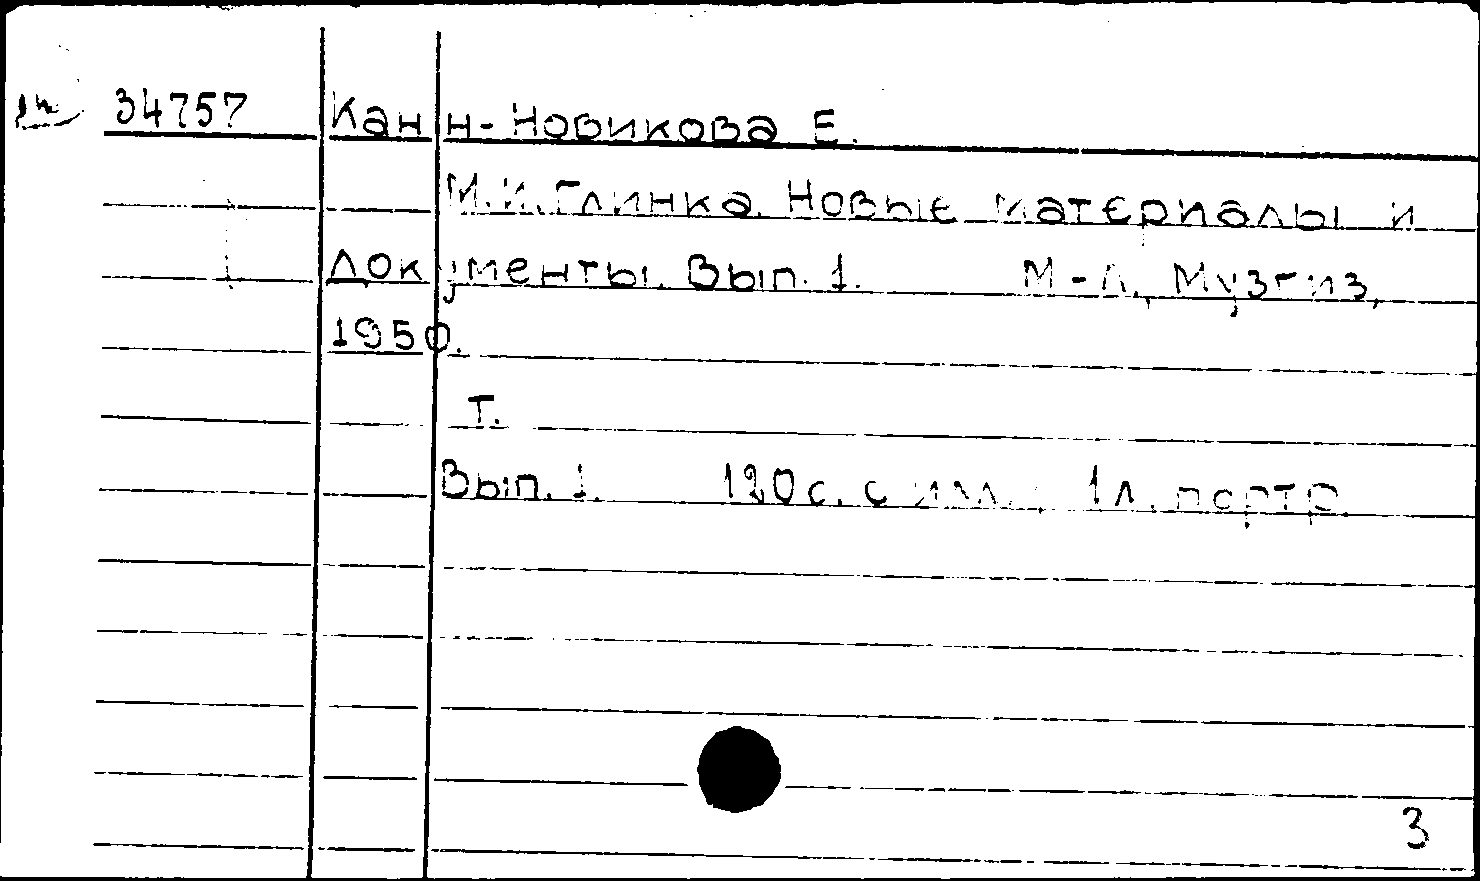 34757 Канн-Новикова Е.
М.И.Глинка. Новые материалы и
документы. Вып. 1. М-Л., Музгиз,
1950.
Т.
Вып. 1. 120с. с илл., 1л. портр.
3